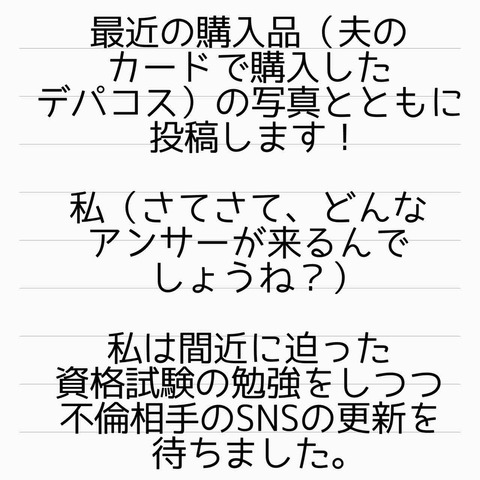 最近の購入品（夫の
カードで購入した
デパコス）の写真とともに
投稿します！
私（さてさて、どんな
アンサーが来るんで
しょうね？）
私は間近に迫った
資格試験の勉強をしつつ
不倫相手のSNSの更新を
待ちました。